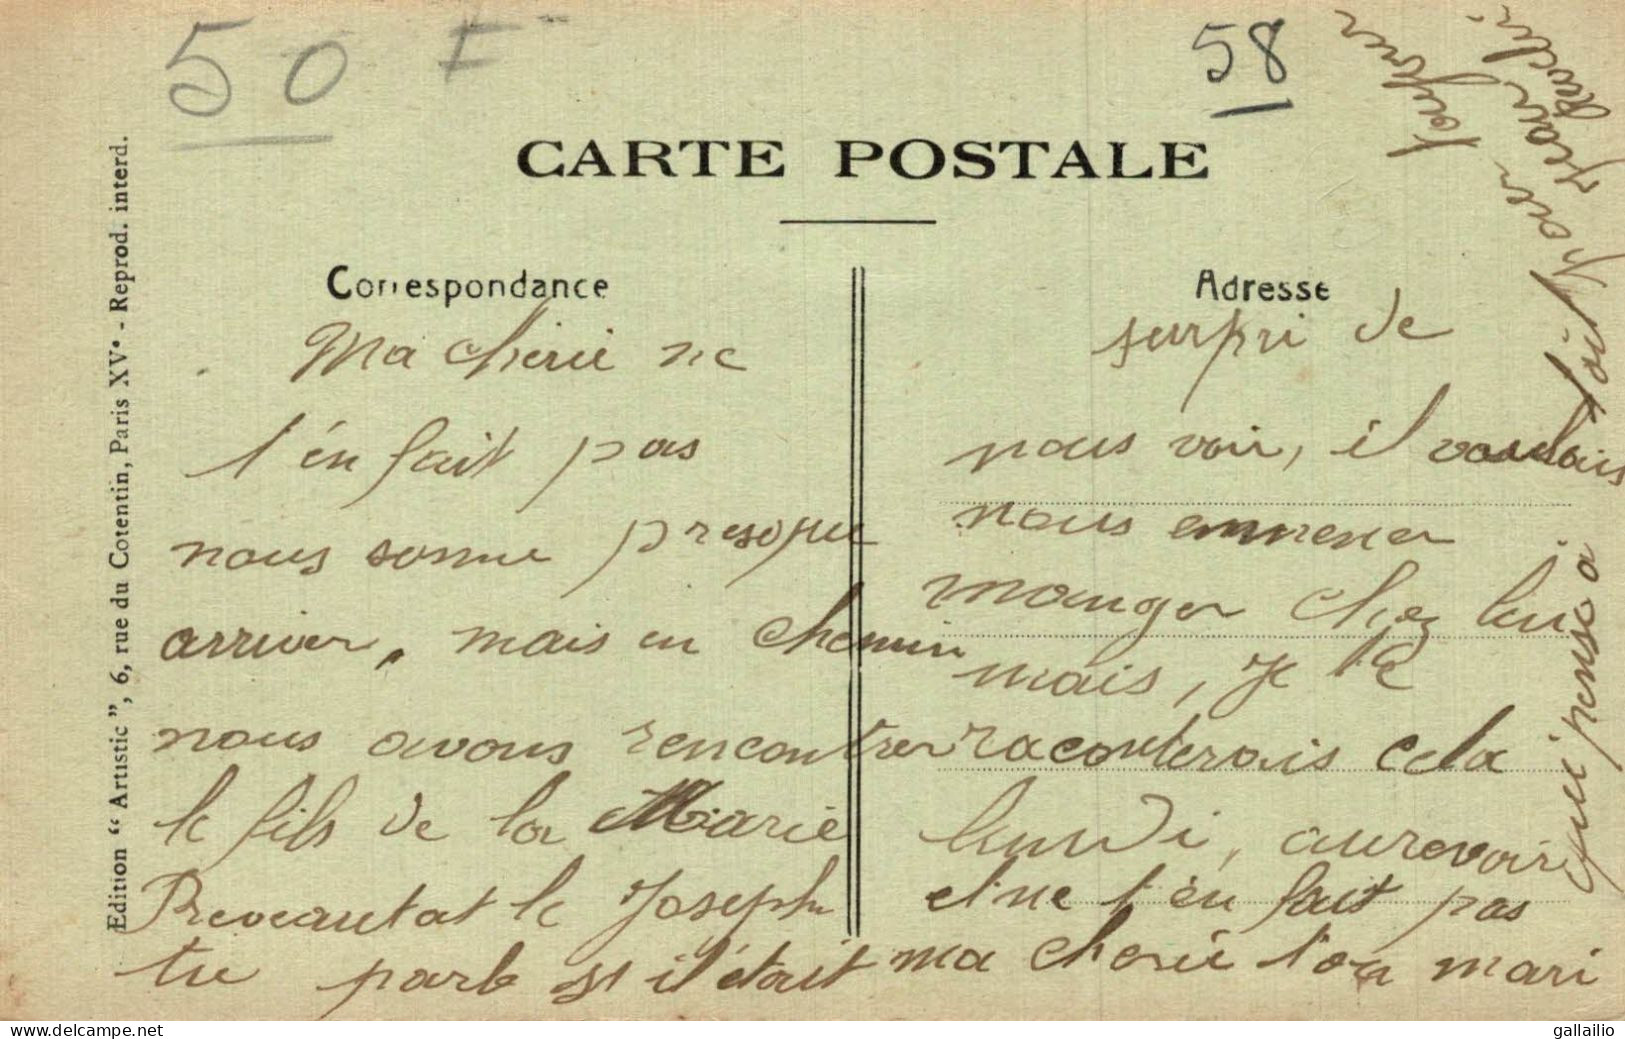 50 F
58
CARTE POSTALE
Correspondance
Ma cherie ne
t'en fait pas
nous somme presque
arriver, mais en chemin
nous avons rencontrer
le fils de la Marie
le Joseph
tu parle si il était
Adresse
surpri de
nous voir, il voulais
nous emmener
manger chez lui
mais, je te
raconterais cela
lundi, aurevoir
et ne t'en fait pas
ma cherie ton mari
qui pense a
toi pour
toujour
Jean
Edition “ Artistic ”, 6, rue du Cotentin, Paris XVe - Reprod. interd.
www.delcampe.net
gallailio